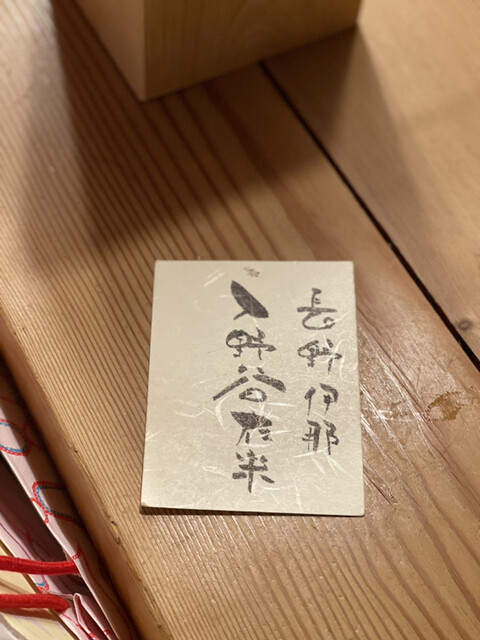 長野伊那
入野谷在来